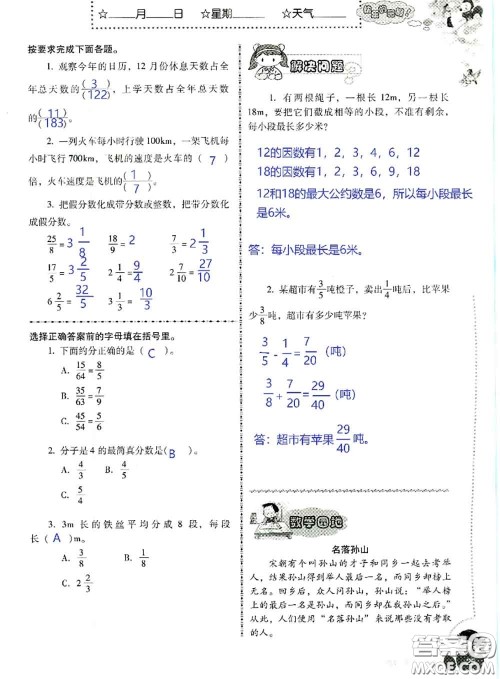 ☆____月____日 ☆星期________ ☆天气________
按要求完成下面各题。
1. 观察今年的日历，12 月份休息天数占全
年总天数的(3)/(122)，上学天数占全年总天数
的(11)/(183)。
2. 一列火车每小时行驶 100km，一架飞机每
小时飞行 700km，飞机的速度是火车的（ 7 ）
倍，火车速度是飞机的(1)/(7)。
3. 把假分数化成带分数或整数，把带分数化
成假分数。
25/8=3 1/8 18/9=2 22/7=3 1/7
17/5=3 2/5 2 1/4=9/4 2 7/10=27/10
6 2/5=32/5 3 1/3=10/3
选择正确答案前的字母填在括号里。
1. 下面约分正确的是（ C ）。
A. 15/64=8/5
B. 35/63=7/9
C. 45/54=5/6
2. 分子是 4 的最简真分数是( B )
A. 4/3 B. 4/5
C. 4/8
3. 3m 长的铁丝平均分成 8 段，每段
长（ A ）m。
A. 3/8 B. 1/8
C. 2 2/3
解决问题
1. 有两根绳子，一根长 12m，另一根长
18m，要把它们截成相等的小段，不准有剩余，
每小段最长多少米？
12的因数有1，2，3，4，6，12
18的因数有1，2，3，6，9，18
12和18的最大公约数是6，所以每小段最长
是6米。
答：每小段最长是6米。
2. 某超市有3/5吨橙子，卖出1/4吨后，比苹果
少3/8吨，超市有多少吨苹果？
3/5-1/4=7/20（吨）
3/8+7/20=29/40（吨）
答：超市有苹果29/40吨。
数学园地
名落孙山
宋朝有个叫孙山的才子和同乡一起去考举
人，结果孙山得到举人最后一名，而同乡却榜上
无名。回乡后，众人问孙山，孙山说：“举人榜
上最后一名是孙山，而同乡却在我孙山之后。”
从此，人们便用“名落孙山”来说那些没有考取
的人。